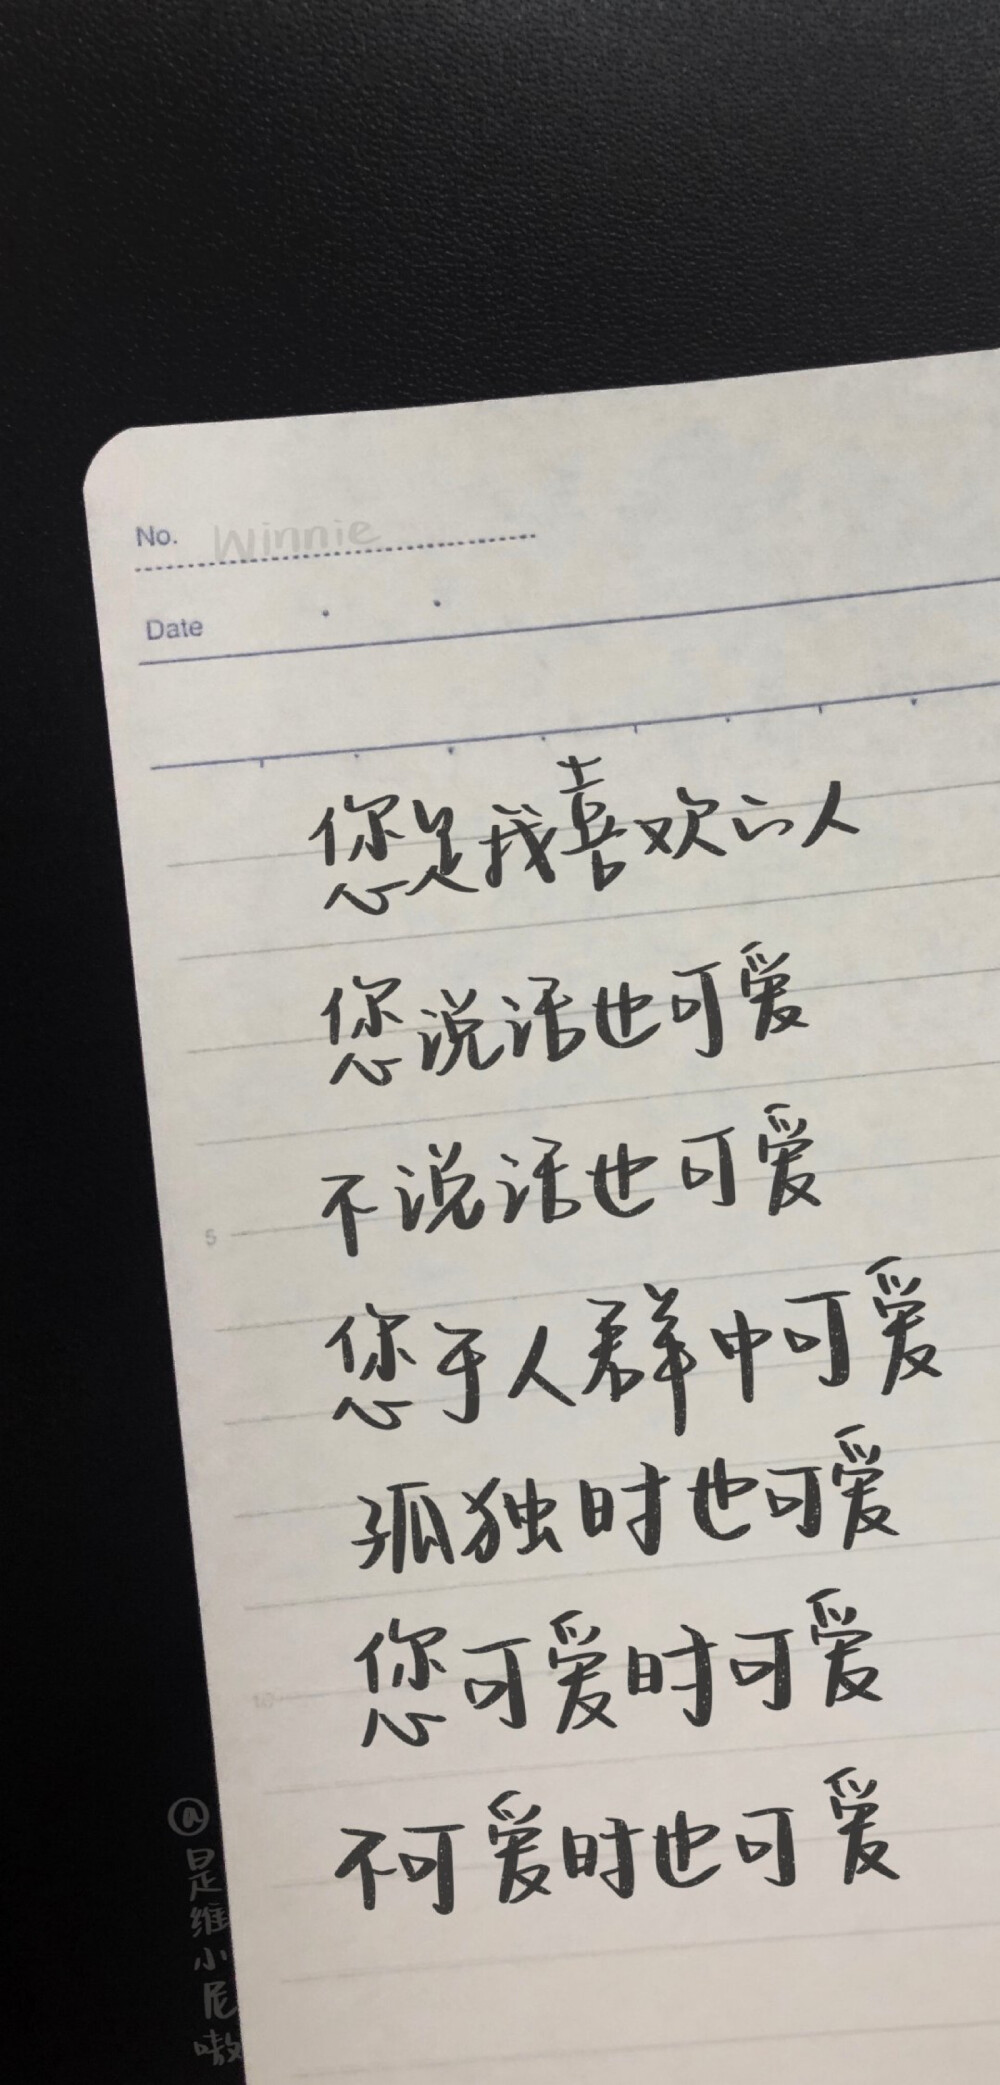 No. Winnie
Date
您是我喜欢的人
您说话也可爱
不说话也可爱
5
您于人群中可爱
孤独时也可爱
您可爱时可爱
10
不可爱时也可爱
@是维小尼嗷